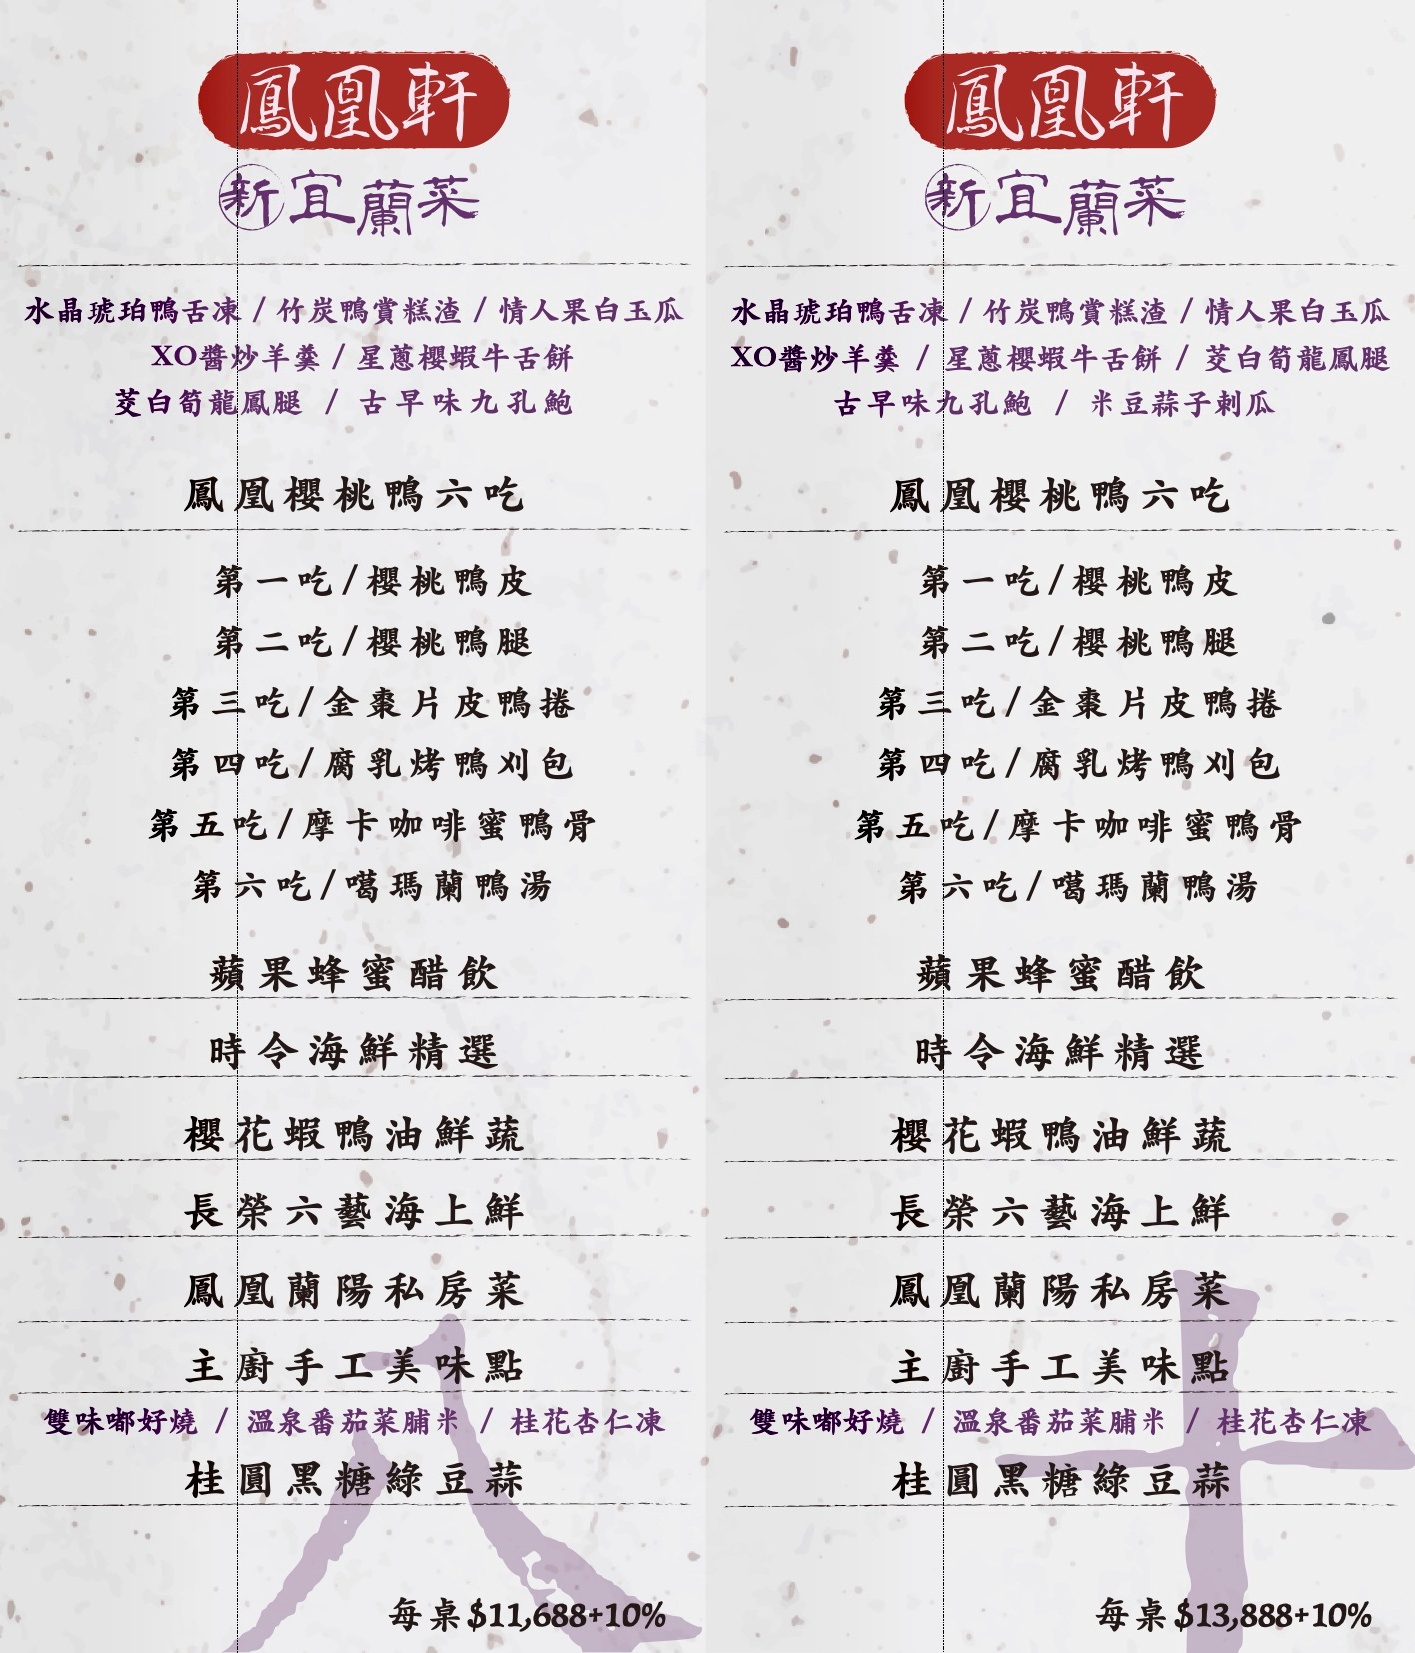 鳳凰軒
新宜蘭菜
水晶琥珀鴨舌凍 / 竹炭鴨賞糕渣 / 情人果白玉瓜
XO醬炒羊羹 / 星蔥櫻蝦牛舌餅
茭白筍龍鳳腿 / 古早味九孔鮑
鳳凰櫻桃鴨六吃
第一吃/櫻桃鴨皮
第二吃/櫻桃鴨腿
第三吃/金棗片皮鴨捲
第四吃/腐乳烤鴨刈包
第五吃/摩卡咖啡蜜鴨骨
第六吃/噶瑪蘭鴨湯
蘋果蜂蜜醋飲
時令海鮮精選
櫻花蝦鴨油鮮蔬
長榮六藝海上鮮
鳳凰蘭陽私房菜
主廚手工美味點
雙味嘟好燒 / 溫泉番茄菜脯米 / 桂花杏仁凍
桂圓黑糖綠豆蒜
八
每桌$11,688+10%
鳳凰軒
新宜蘭菜
水晶琥珀鴨舌凍 / 竹炭鴨賞糕渣 / 情人果白玉瓜
XO醬炒羊羹 / 星蔥櫻蝦牛舌餅 / 茭白筍龍鳳腿
古早味九孔鮑 / 米豆蒜子刺瓜
鳳凰櫻桃鴨六吃
第一吃/櫻桃鴨皮
第二吃/櫻桃鴨腿
第三吃/金棗片皮鴨捲
第四吃/腐乳烤鴨刈包
第五吃/摩卡咖啡蜜鴨骨
第六吃/噶瑪蘭鴨湯
蘋果蜂蜜醋飲
時令海鮮精選
櫻花蝦鴨油鮮蔬
長榮六藝海上鮮
鳳凰蘭陽私房菜
主廚手工美味點
雙味嘟好燒 / 溫泉番茄菜脯米 / 桂花杏仁凍
桂圓黑糖綠豆蒜
十
每桌$13,888+10%